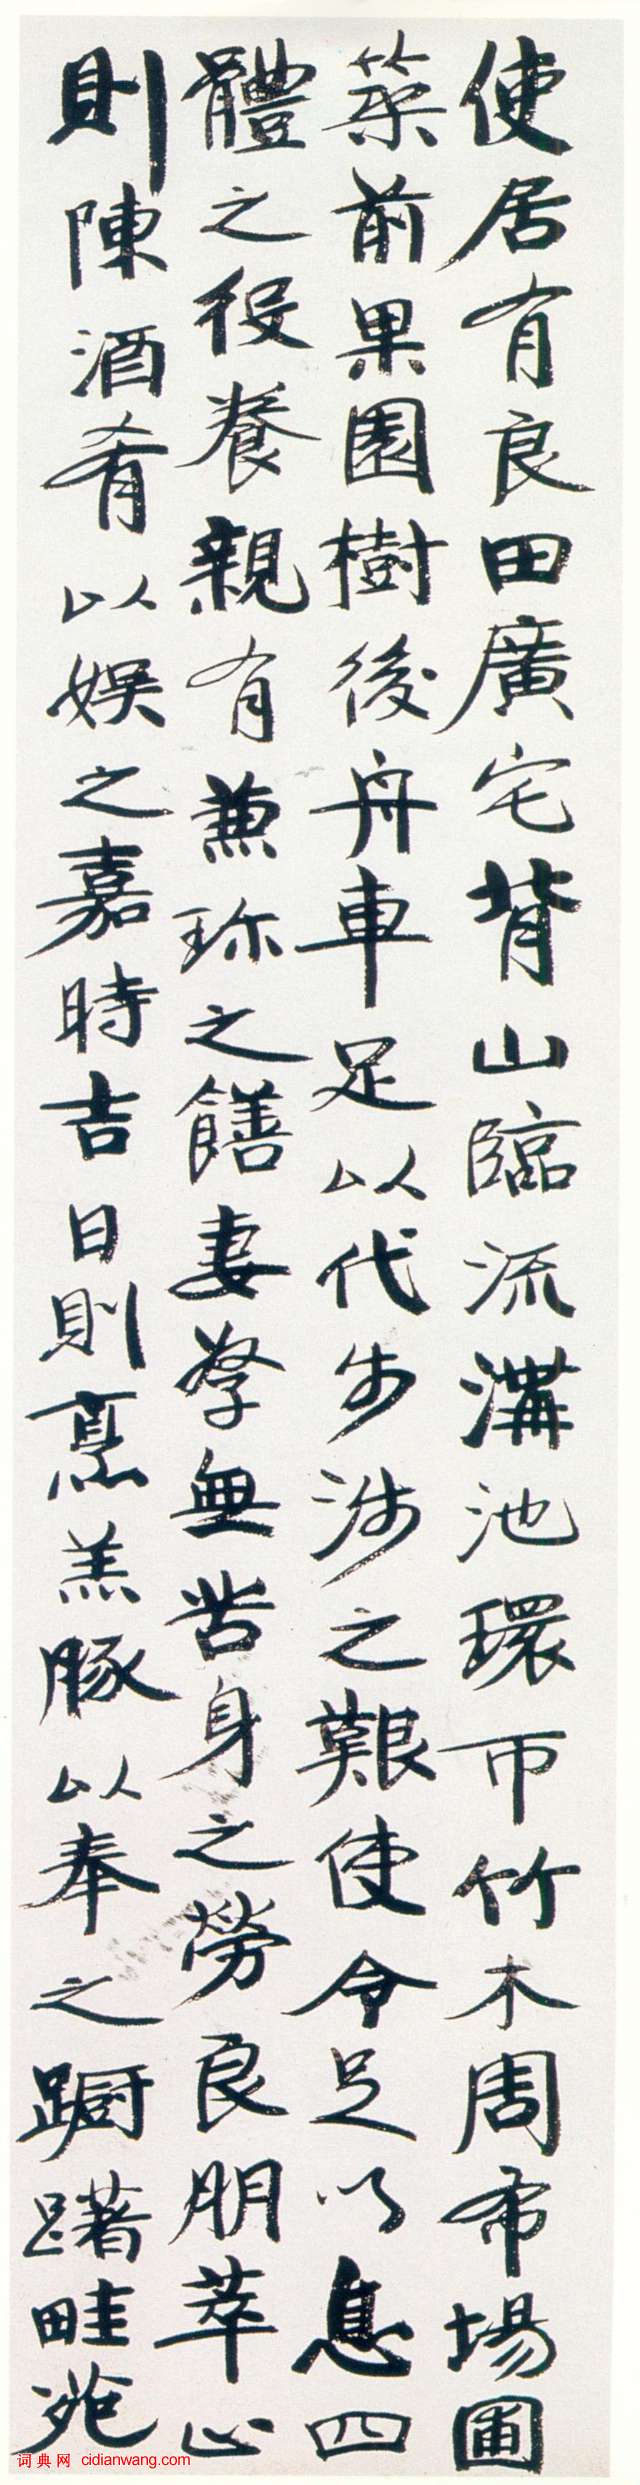 使居有良田廣宅背山臨流溝池環帀竹木周布場圃
築前果園樹後舟車足以代步涉之艱使令足以息四
體之役養親有兼珍之饍妻孥無苦身之勞良朋萃止
則陳酒肴以娛之嘉時吉日則烹羔豚以奉之蹰躇畦苑
词典网 cidianwang.com